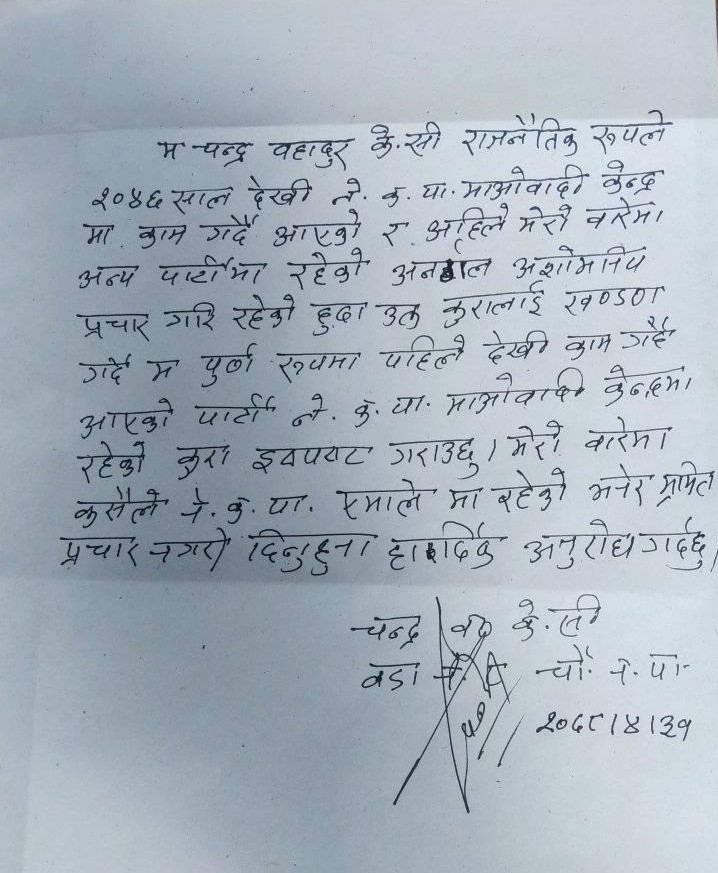 म चन्द्र वहादुर के.सी राजनैतिक रुपले
२०४६ साल देखी ने. क. पा. माओवादी केन्द्र
मा काम गर्दै आएको र अहिले मेरो वारेमा
अन्य पार्टीमा रहेको अनर्गल अशोभनिय
प्रचार गरि रहेको हुदा उक्त कुरालाई खण्डण
गर्दै म पुर्ण रुपमा पहिले देखी काम गर्दै
आएको पार्टी ने. क. पा. माओवादी केन्द्रमा
रहेको कुरा इस्पष्ट गराउछु। मेरो वारेमा
कसैले ने. क. पा. एमाले मा रहेको भनेर भ्रामित
प्रचार नगरी दिनुहुना हार्दिक अनुरोध गर्दछु।
चन्द्र वद के.सी
वडा नं चौ. न. पा.